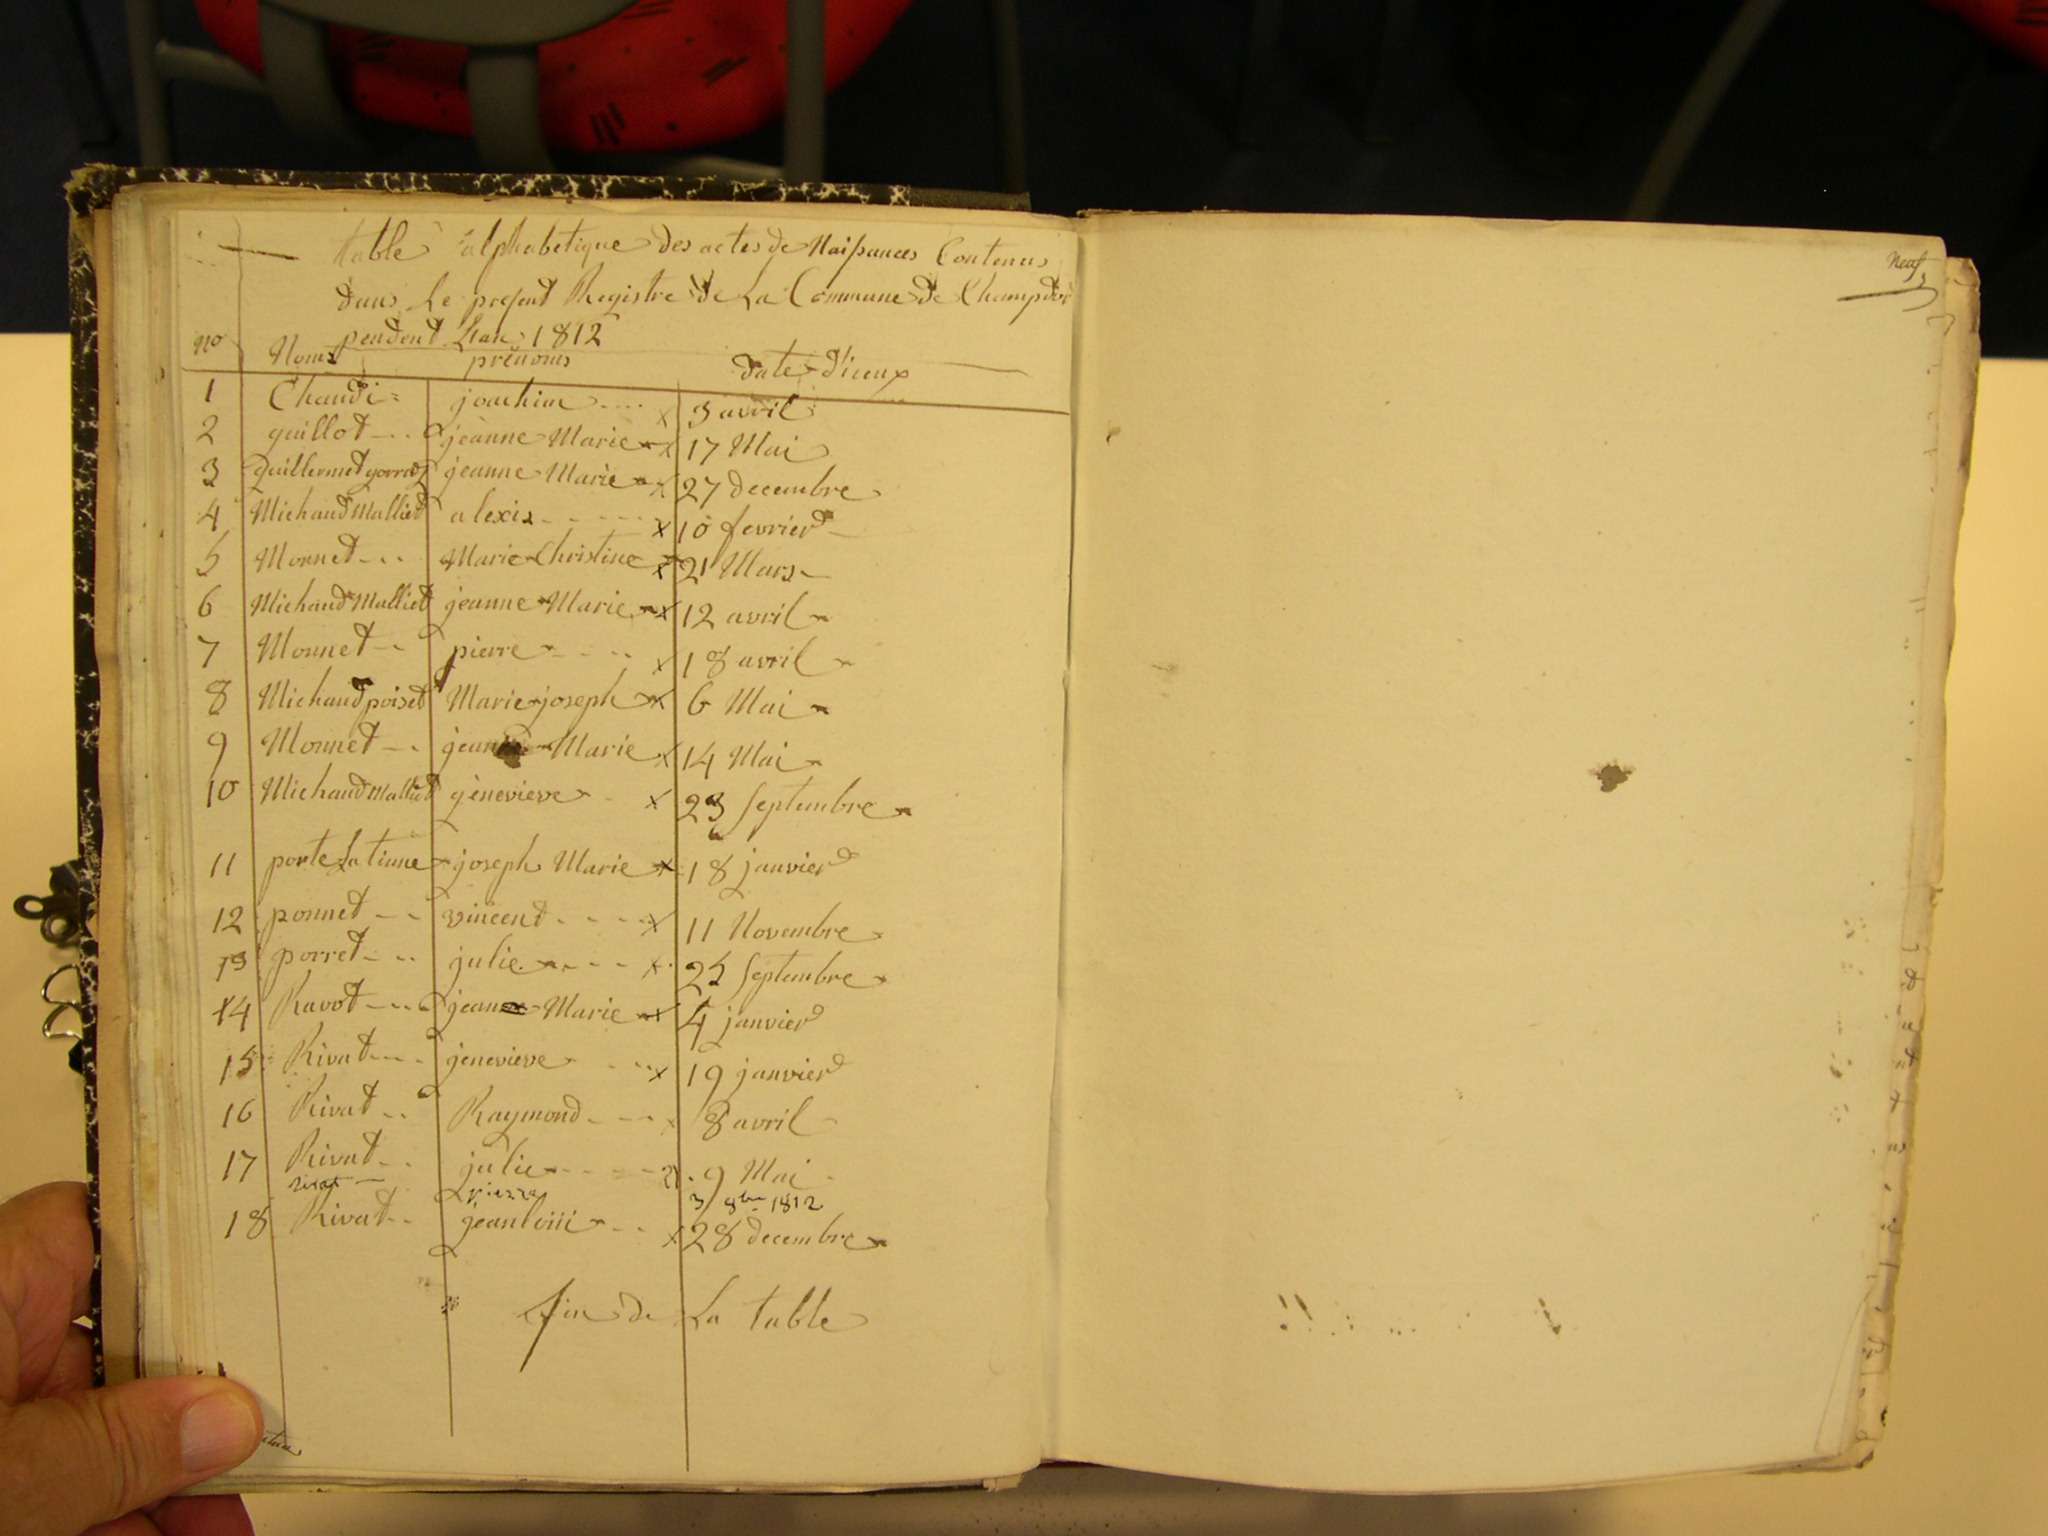 table alphabetique des actes de Naissances Contenus
dans Le present Registre de La Commune de Champdor
pendent L'an 1812
No Noms prénoms date d'iceux
1 Chaudi= joachim 3 avril
2 guillot jeanne Marie x 17 Mai
3 guillermet gorraz jeanne Marie x 27 decembre
4 Michaud Malliet alexis x 10 fevrier
5 Monnet Marie Christine x 21 Mars
6 Michaud Malliet jeanne Marie x 12 avril
7 Monnet pierre x 18 avril
8 Michaud poiset Marie joseph x 6 Mai
9 Monnet jeanne Marie x 14 Mai
10 Michaud Malliet génevieve x 23 Septembre
11 porte La tinne joseph Marie x 18 janvier
12 ponnet vincent x 11 Novembre
13 porret julie x 25 Septembre
14 Ravot jeanne Marie x 4 janvier
15 Rivat genevieve x 19 janvier
16 Rivat Raymond 8 avril
17 Rivat julie 9 Mai
rivat pierre 3/8bre 1812
18 Rivat x 28 decembre
fin de La table
Neuf